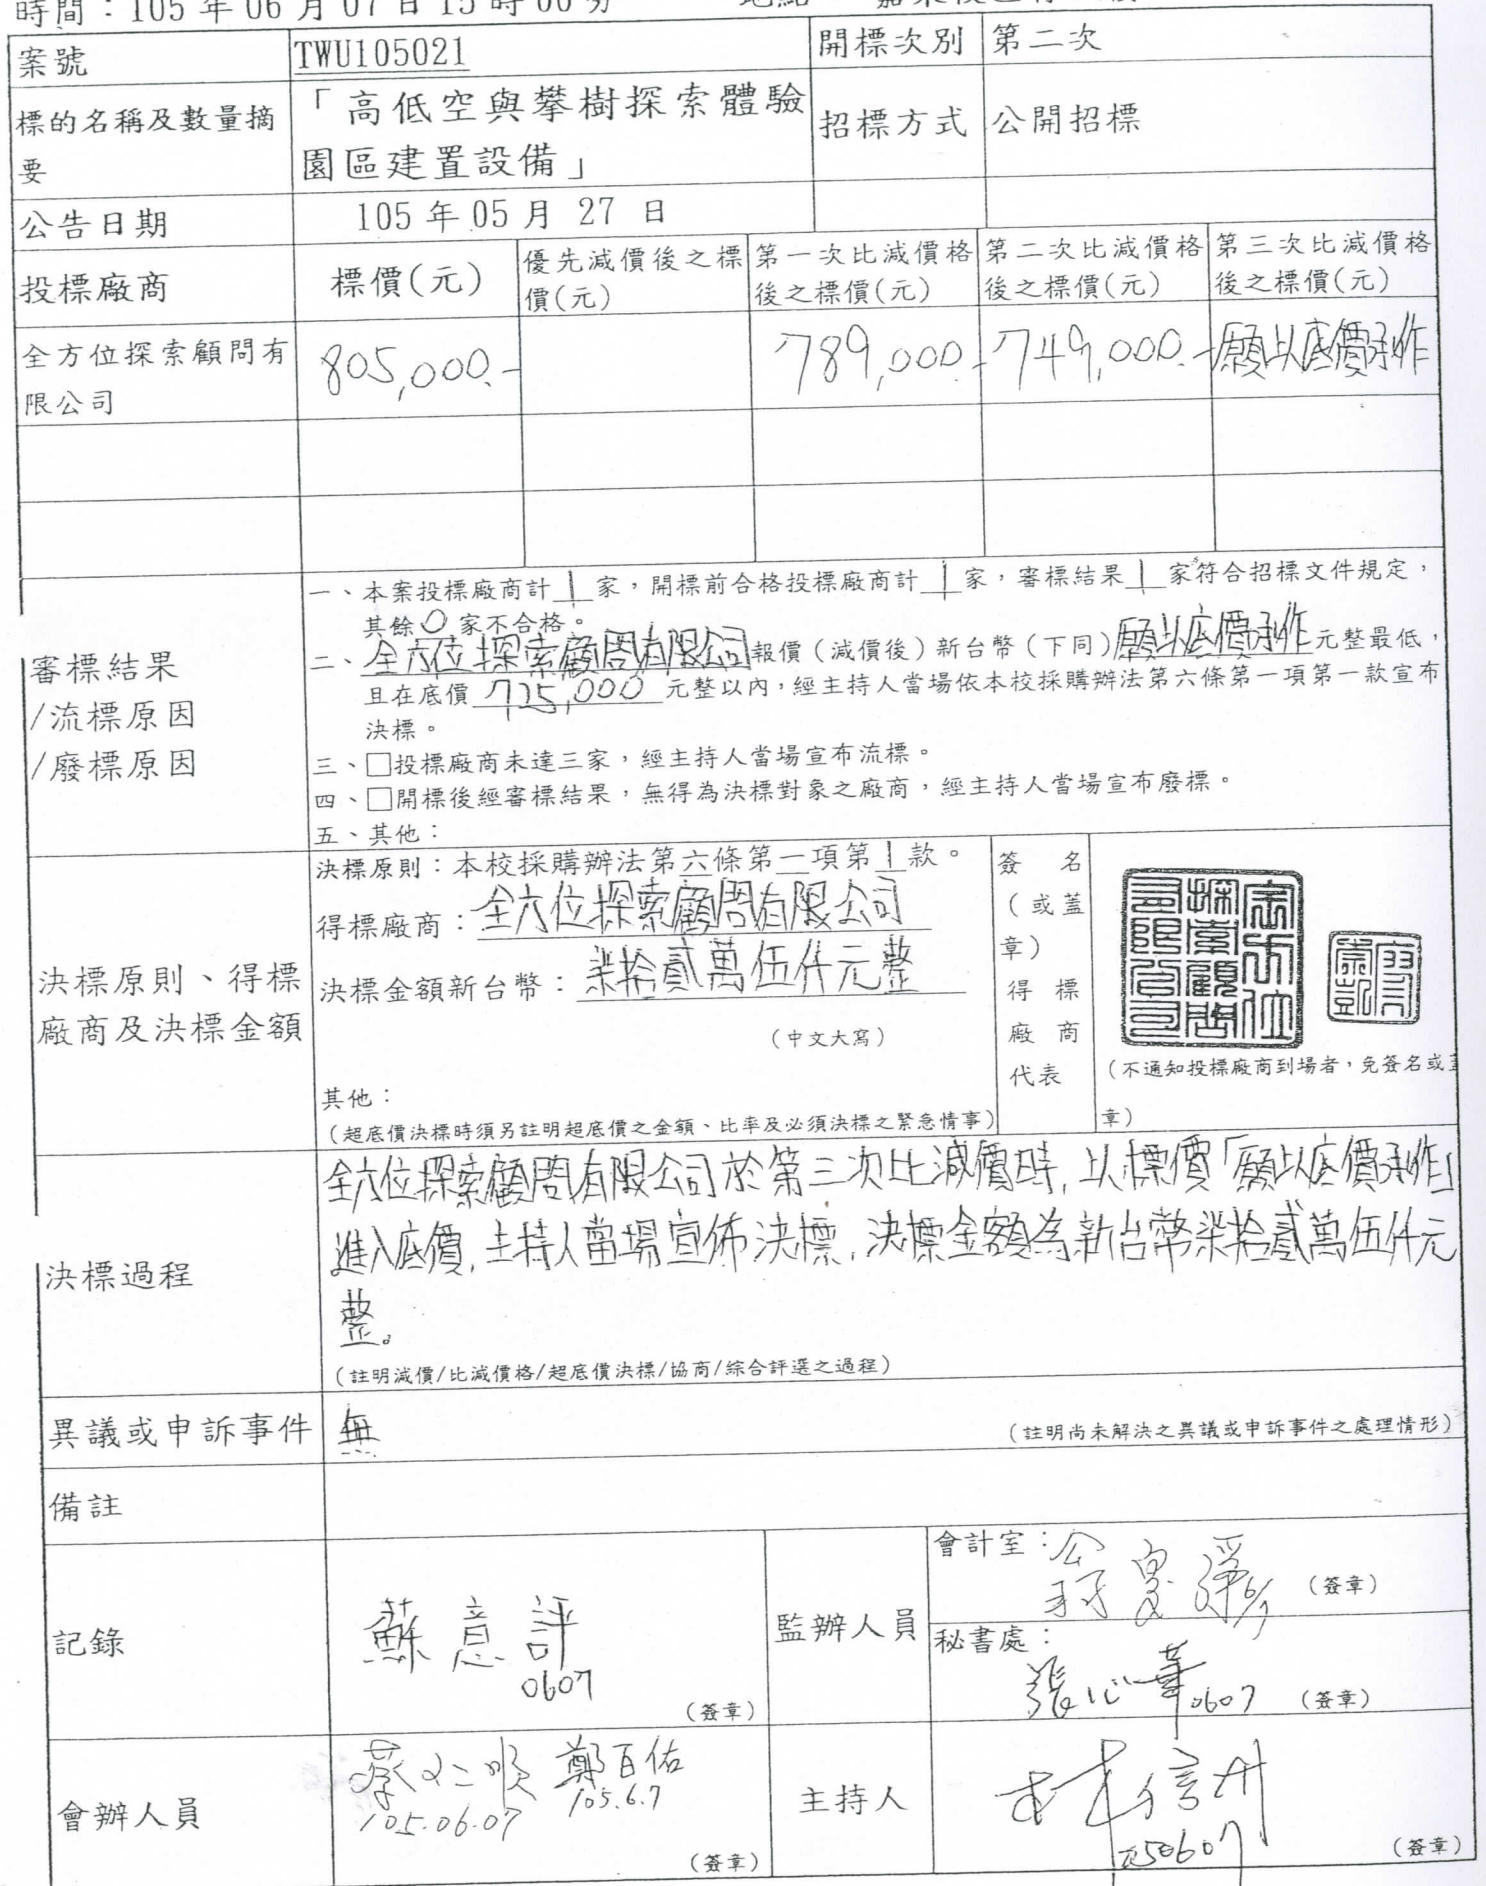 時間：105 年 06 月 07 日 15 時 00 分
案號
TWU105021
開標次別
第二次
標的名稱及數量摘
要
「高低空與攀樹探索體驗
園區建置設備」
招標方式
公開招標
公告日期
105 年 05 月 27 日
投標廠商
標價(元)
優先減價後之標
價(元)
第一次比減價格
後之標價(元)
第二次比減價格
後之標價(元)
第三次比減價格
後之標價(元)
全方位探索顧問有
限公司
805,000.-
789,000.-
749,000.-
願以底價承作
審標結果
/流標原因
/廢標原因
一、本案投標廠商計 1 家，開標前合格投標廠商計 1 家，審標結果 1 家符合招標文件規定，
其餘 0 家不合格。
二、全方位探索顧問有限公司報價（減價後）新台幣（下同）願以底價承作元整最低，
且在底價 725,000 元整以內，經主持人當場依本校採購辦法第六條第一項第一款宣布
決標。
三、□投標廠商未達三家，經主持人當場宣布流標。
四、□開標後經審標結果，無得為決標對象之廠商，經主持人當場宣布廢標。
五、其他：
決標原則、得標
廠商及決標金額
決標原則：本校採購辦法第六條第一項第1款。
得標廠商：全方位探索顧問有限公司
決標金額新台幣：柒拾貳萬伍仟元整
（中文大寫）
其他：
（超底價決標時須另註明超底價之金額、比率及必須決標之緊急情事）
簽 名
（或蓋
章）
得 標
廠 商
代表
全方位
探索顧問
有限公司
（不通知投標廠商到場者，免簽名或蓋
章）
決標過程
全方位探索顧問有限公司於第三次比減價時，以標價「願以底價承作」
進入底價，主持人當場宣佈決標，決標金額為新台幣柒拾貳萬伍仟元
整。
（註明減價/比減價格/超底價決標/協商/綜合評選之過程）
異議或申訴事件
無
（註明尚未解決之異議或申訴事件之處理情形）
備註
記錄
蘇意評
0607
（簽章）
監辦人員
會計室：
（簽章）
秘書處：
張心華 0607
（簽章）
會辦人員
蔡仁順 鄭百佑
105.06.07 105.6.7
（簽章）
主持人
林信州
1050607
（簽章）